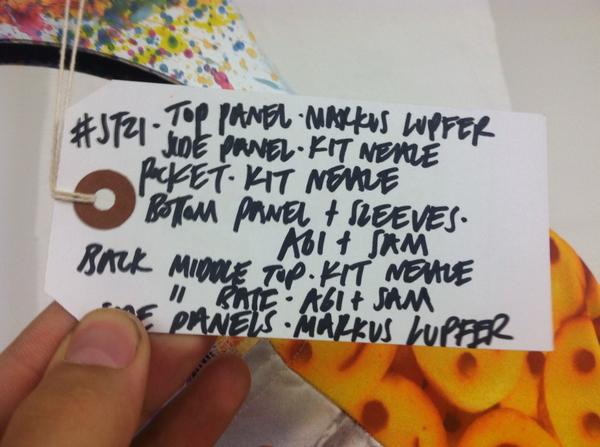 #SF21. TOP PANEL. MARKUS LUPFER
SIDE PANEL. KIT NEALE
POCKET. KIT NEALE
BOTTOM PANEL + SLEEVES.
AGI + SAM
BACK MIDDLE TOP. KIT NEALE
" BASE. AGI + SAM
SIDE PANELS. MARKUS LUPFER